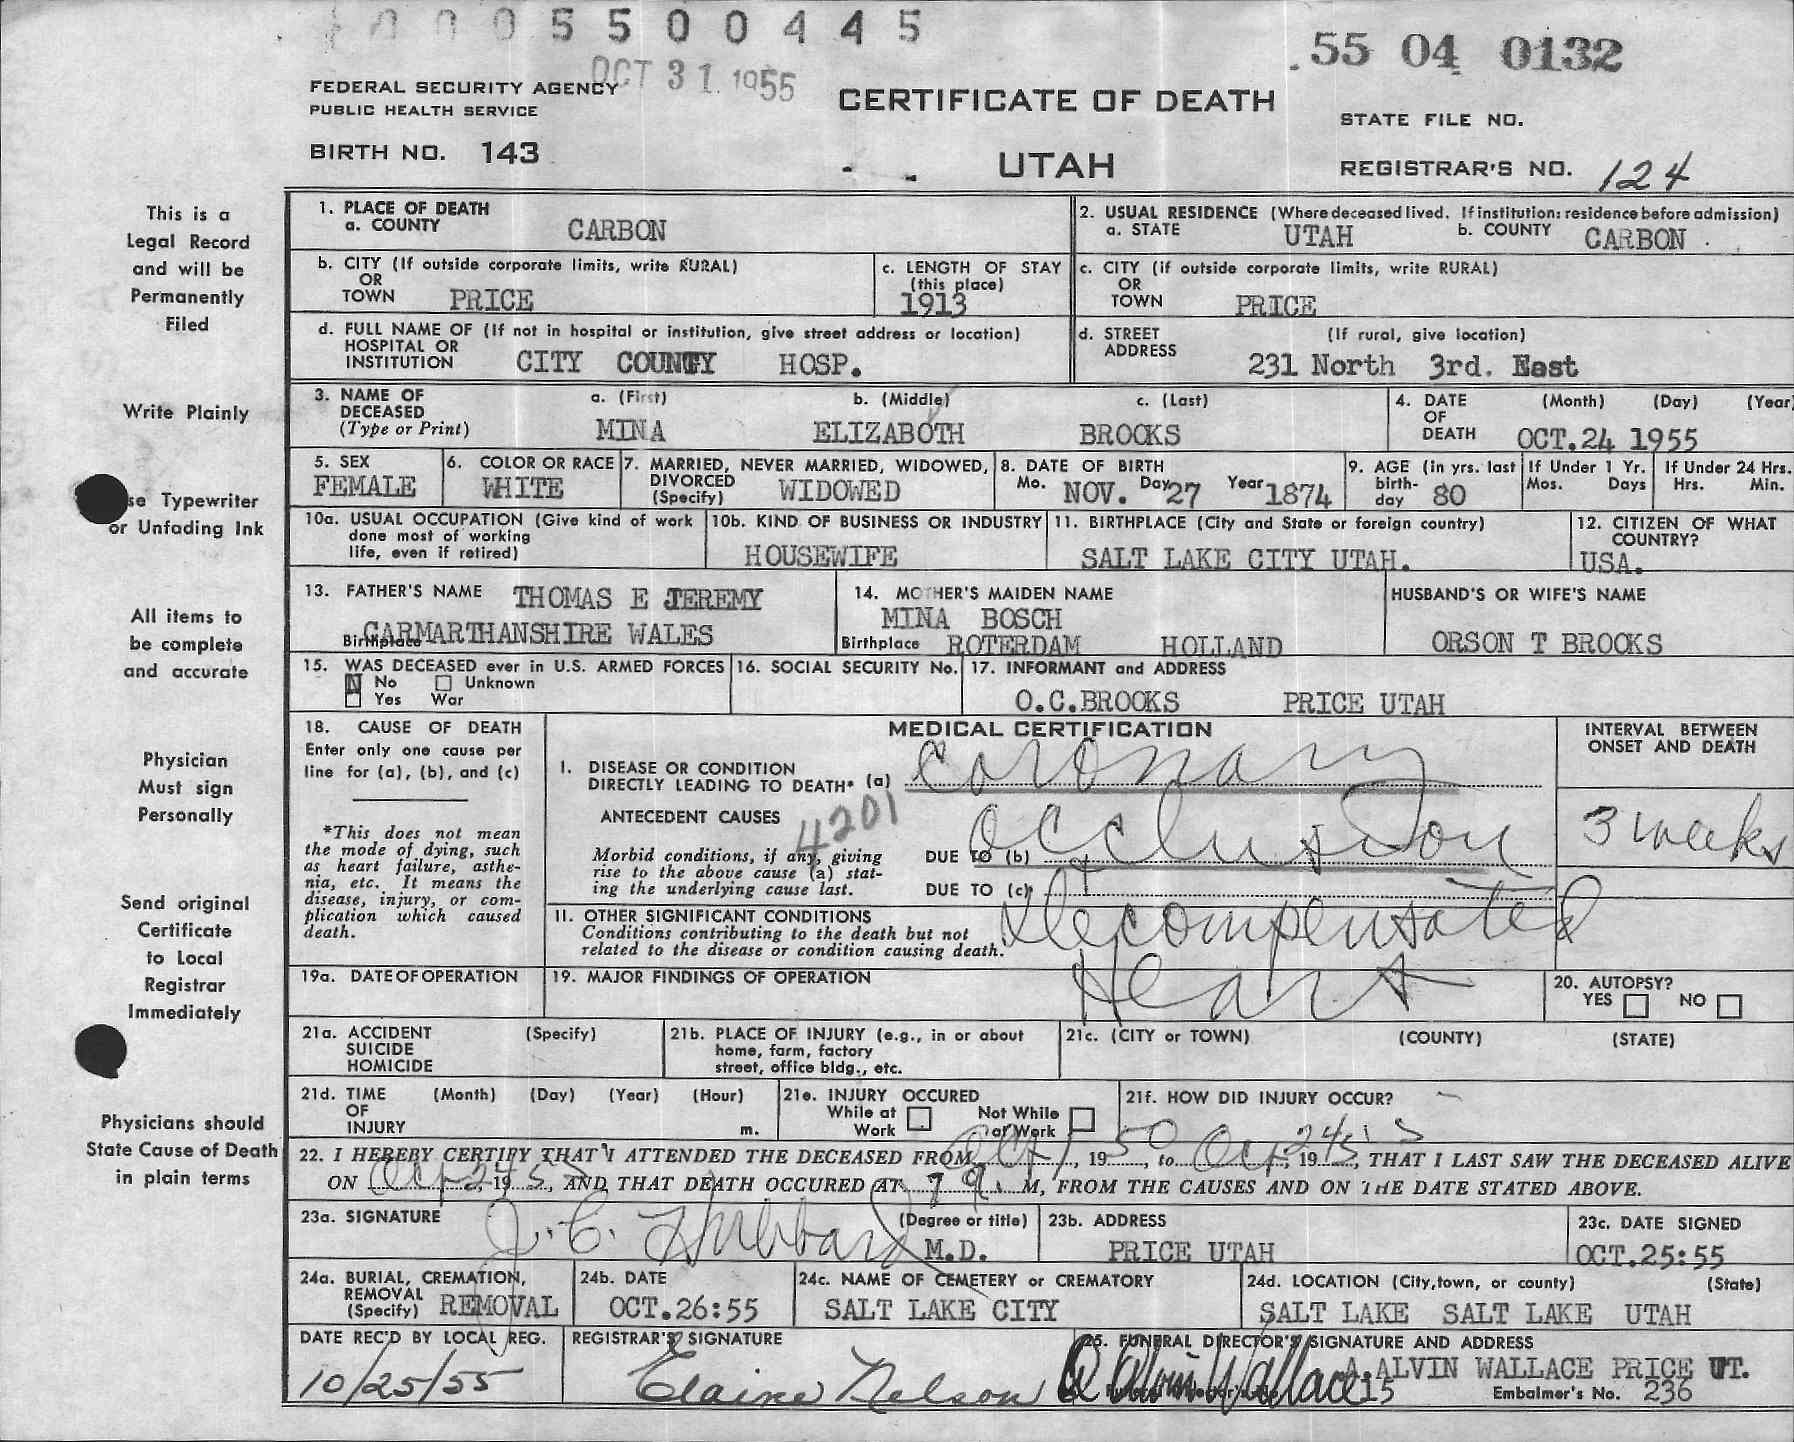 0005500445
OCT 31 1955
55 04 0132
FEDERAL SECURITY AGENCY
PUBLIC HEALTH SERVICE
CERTIFICATE OF DEATH
STATE FILE NO.
BIRTH NO. 143
UTAH
REGISTRAR'S NO. 124
This is a
Legal Record
and will be
Permanently
Filed
Write Plainly
se Typewriter
or Unfading Ink
All items to
be complete
and accurate
Physician
Must sign
Personally
Send original
Certificate
to Local
Registrar
Immediately
Physicians should
State Cause of Death
in plain terms
1. PLACE OF DEATH
a. COUNTY CARBON
2. USUAL RESIDENCE (Where deceased lived. If institution: residence before admission)
a. STATE UTAH b. COUNTY CARBON
b. CITY (If outside corporate limits, write RURAL)
OR
TOWN PRICE
c. LENGTH OF STAY
(this place)
1913
c. CITY (if outside corporate limits, write RURAL)
OR
TOWN PRICE
d. FULL NAME OF (If not in hospital or institution, give street address or location)
HOSPITAL OR
INSTITUTION CITY COUNTY HOSP.
d. STREET (If rural, give location)
ADDRESS 231 North 3rd. East
3. NAME OF DECEASED (Type or Print)
a. (First) b. (Middle) c. (Last)
MINA ELIZABOTH BROOKS
4. DATE OF DEATH (Month) (Day) (Year)
OCT.24 1955
5. SEX
FEMALE
6. COLOR OR RACE
WHITE
7. MARRIED, NEVER MARRIED, WIDOWED,
DIVORCED
(Specify) WIDOWED
8. DATE OF BIRTH
Mo. NOV. Day 27 Year 1874
9. AGE (in yrs. last
birth-
day 80
If Under 1 Yr.
Mos. Days
If Under 24 Hrs.
Hrs. Min.
10a. USUAL OCCUPATION (Give kind of work
done most of working
life, even if retired)
10b. KIND OF BUSINESS OR INDUSTRY
HOUSEWIFE
11. BIRTHPLACE (City and State or foreign country)
SALT LAKE CITY UTAH.
12. CITIZEN OF WHAT
COUNTRY?
USA.
13. FATHER'S NAME THOMAS E JEREMY
Birthplace CARMARTHANSHIRE WALES
14. MOTHER'S MAIDEN NAME
MINA BOSCH
Birthplace ROTERDAM HOLLAND
HUSBAND'S OR WIFE'S NAME
ORSON T BROOKS
15. WAS DECEASED ever in U.S. ARMED FORCES
N No Unknown
Yes War
16. SOCIAL SECURITY No.
17. INFORMANT and ADDRESS
O.C.BROOKS PRICE UTAH
18. CAUSE OF DEATH
Enter only one cause per
line for (a), (b), and (c)
*This does not mean
the mode of dying, such
as heart failure, asthe-
nia, etc. It means the
disease, injury, or com-
plication which caused
death.
MEDICAL CERTIFICATION
INTERVAL BETWEEN
ONSET AND DEATH
I. DISEASE OR CONDITION
DIRECTLY LEADING TO DEATH* (a) Coronary
4201
ANTECEDENT CAUSES
Morbid conditions, if any, giving
rise to the above cause (a) stat-
ing the underlying cause last.
DUE TO (b) Occlusion
3 weeks
DUE TO (c)
II. OTHER SIGNIFICANT CONDITIONS
Conditions contributing to the death but not
related to the disease or condition causing death.
Decompensated
Heart
19a. DATE OF OPERATION
19. MAJOR FINDINGS OF OPERATION
20. AUTOPSY?
YES NO
21a. ACCIDENT (Specify)
SUICIDE
HOMICIDE
21b. PLACE OF INJURY (e.g., in or about
home, farm, factory
street, office bldg., etc.
21c. (CITY or TOWN) (COUNTY) (STATE)
21d. TIME (Month) (Day) (Year) (Hour)
OF
INJURY m.
21e. INJURY OCCURED
While at Work Not While at Work
21f. HOW DID INJURY OCCUR?
22. I HEREBY CERTIFY THAT I ATTENDED THE DECEASED FROM Oct 1, 1950, to Oct 24, 1955, THAT I LAST SAW THE DECEASED ALIVE
ON Oct 24, 1955, AND THAT DEATH OCCURED AT 7 M, FROM THE CAUSES AND ON THE DATE STATED ABOVE.
23a. SIGNATURE (Degree or title)
J. C. Hubbard M.D.
23b. ADDRESS
PRICE UTAH
23c. DATE SIGNED
OCT.25:55
24a. BURIAL, CREMATION,
REMOVAL
(Specify) REMOVAL
24b. DATE
OCT.26:55
24c. NAME OF CEMETERY or CREMATORY
SALT LAKE CITY
24d. LOCATION (City, town, or county) (State)
SALT LAKE SALT LAKE UTAH
DATE REC'D BY LOCAL REG.
10/25/55
REGISTRAR'S SIGNATURE
Elaine Nelson
25. FUNERAL DIRECTOR'S SIGNATURE AND ADDRESS
A. Alvin Wallace A. ALVIN WALLACE PRICE UT.
15 Embalmer's No. 236